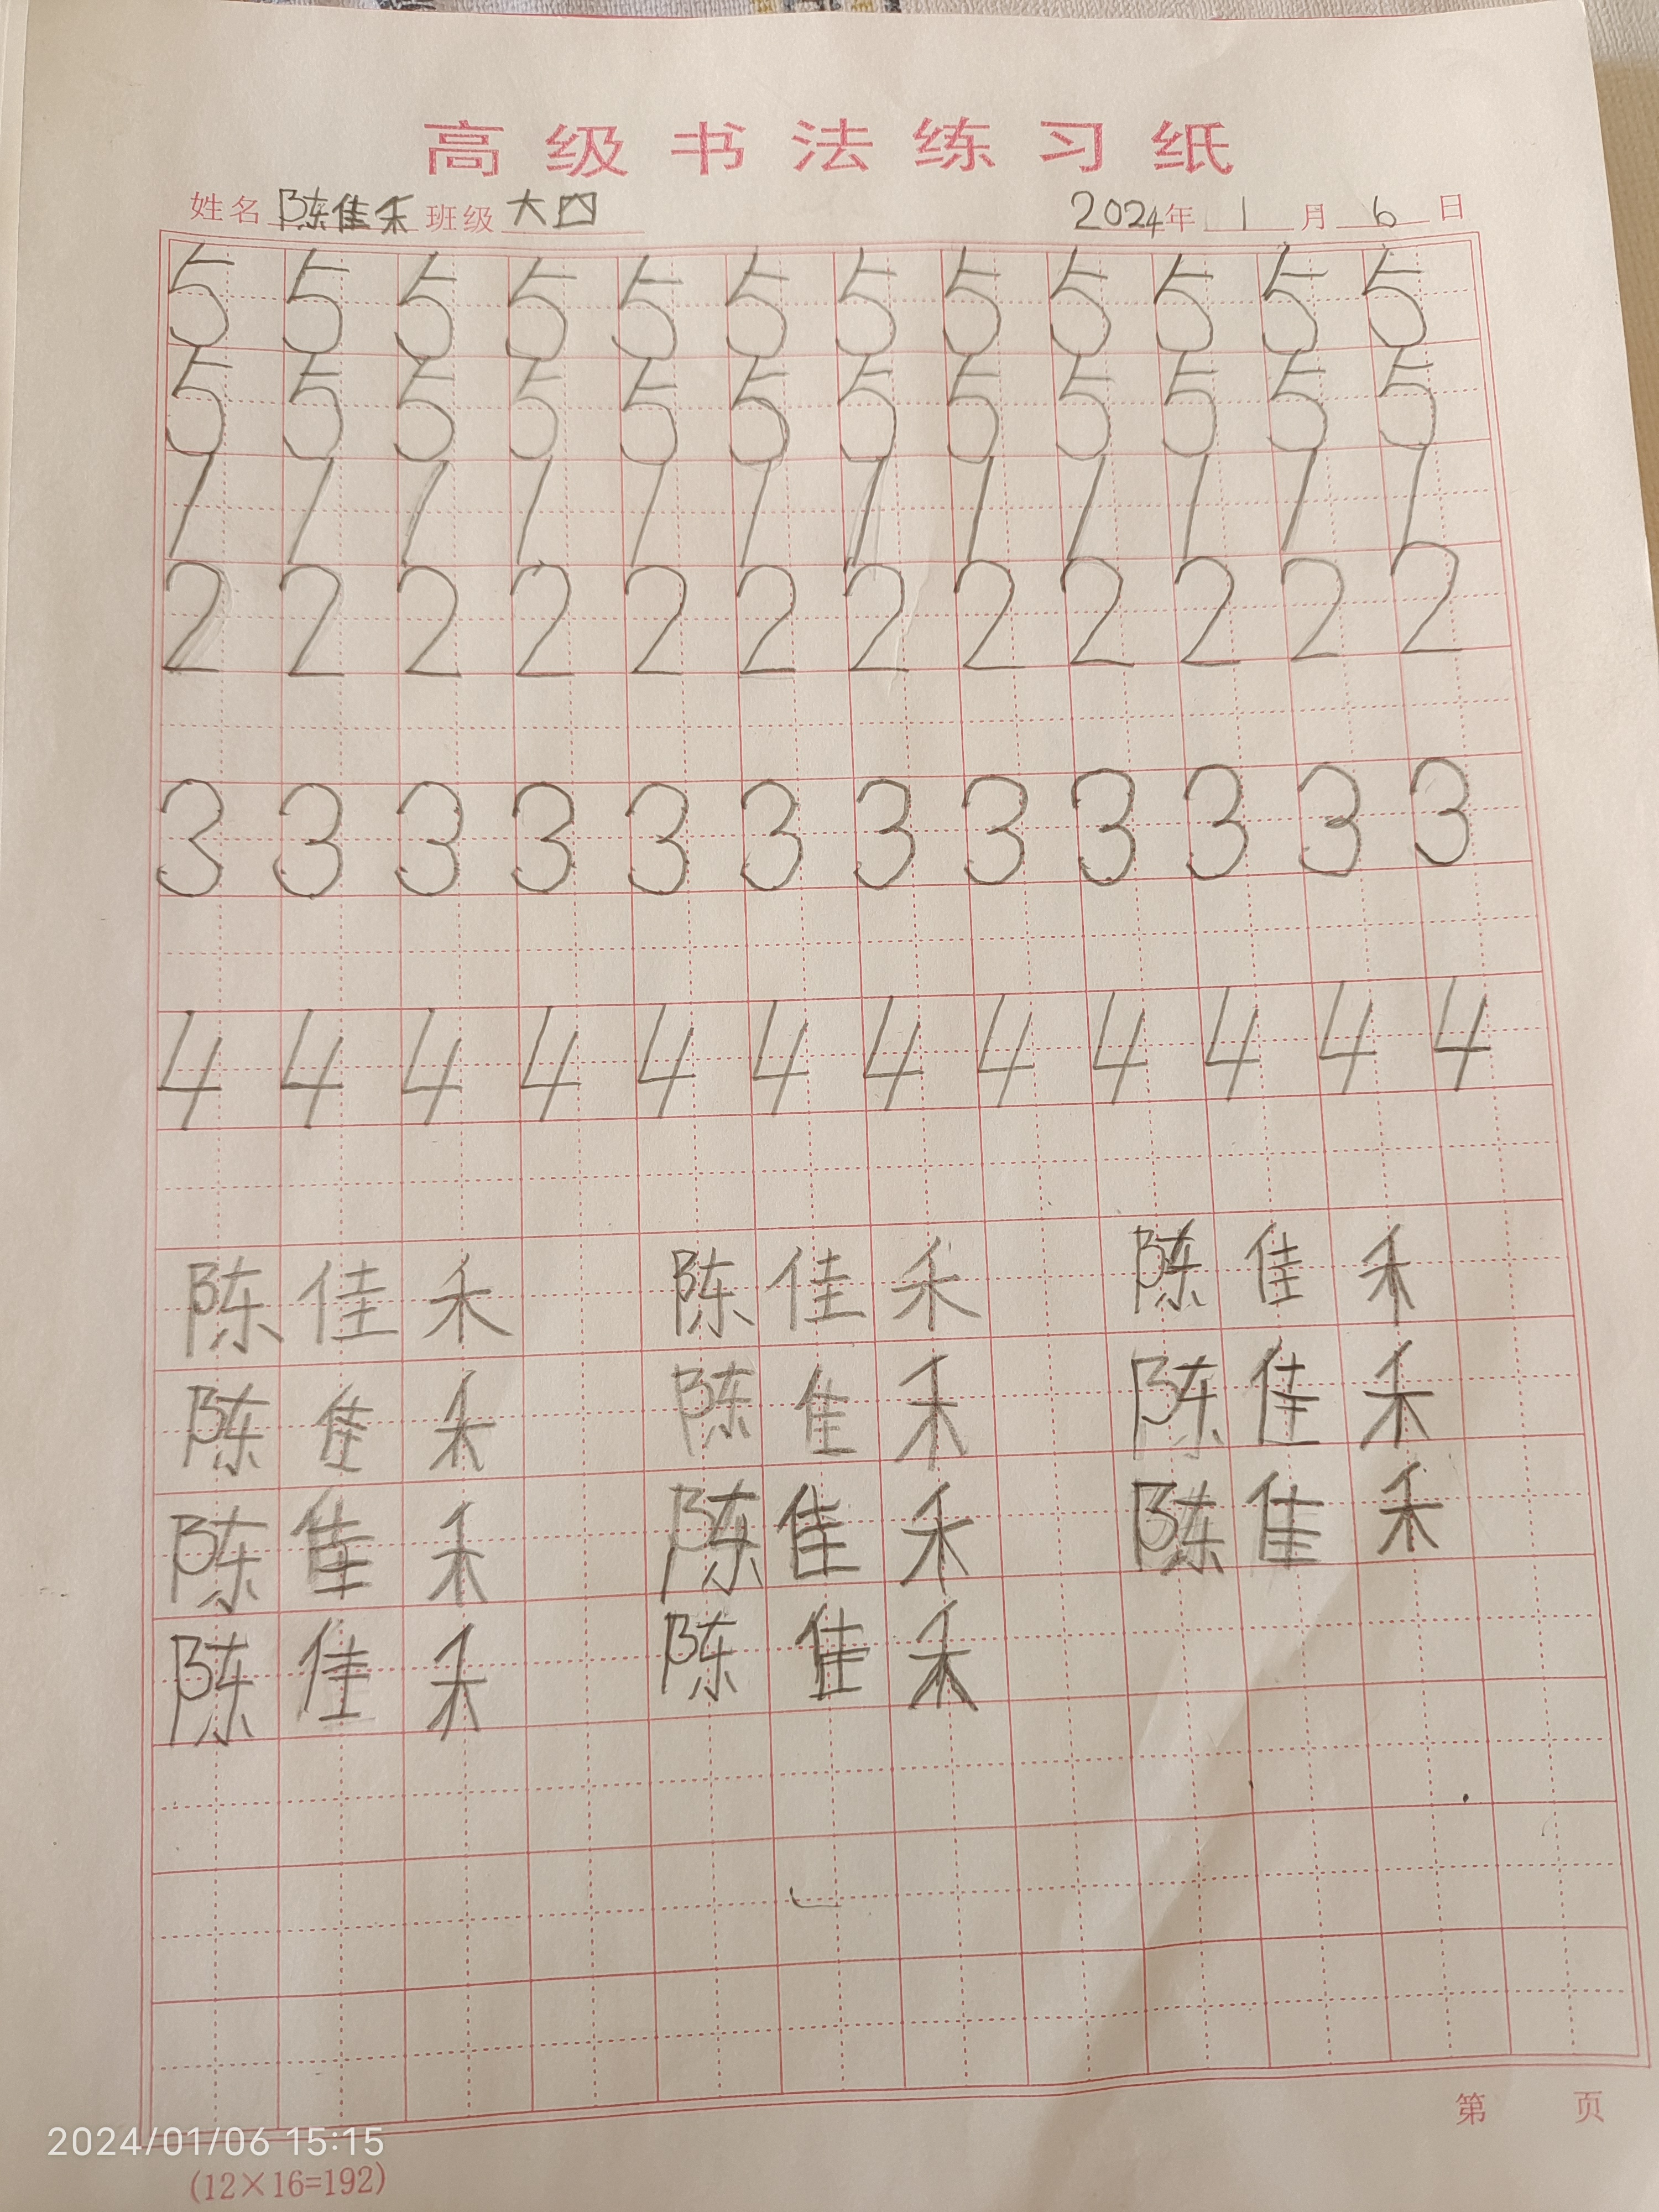 高级书法练习纸
姓名 陈佳禾 班级 大四 2024年 1 月 6 日
5 5 5 5 5 5 5 5 5 5 5 5
5 5 5 5 5 5 5 5 5 5 5 5
1 1 1 1 1 1 1 1 1 1 1 1
2 2 2 2 2 2 2 2 2 2 2 2
3 3 3 3 3 3 3 3 3 3 3 3
4 4 4 4 4 4 4 4 4 4 4 4
陈佳禾 陈佳禾 陈佳禾
陈佳禾 陈佳禾 陈佳禾
陈佳禾 陈佳禾 陈佳禾
陈佳禾 陈佳禾
第 页
2024/01/06 15:15
(12×16=192)